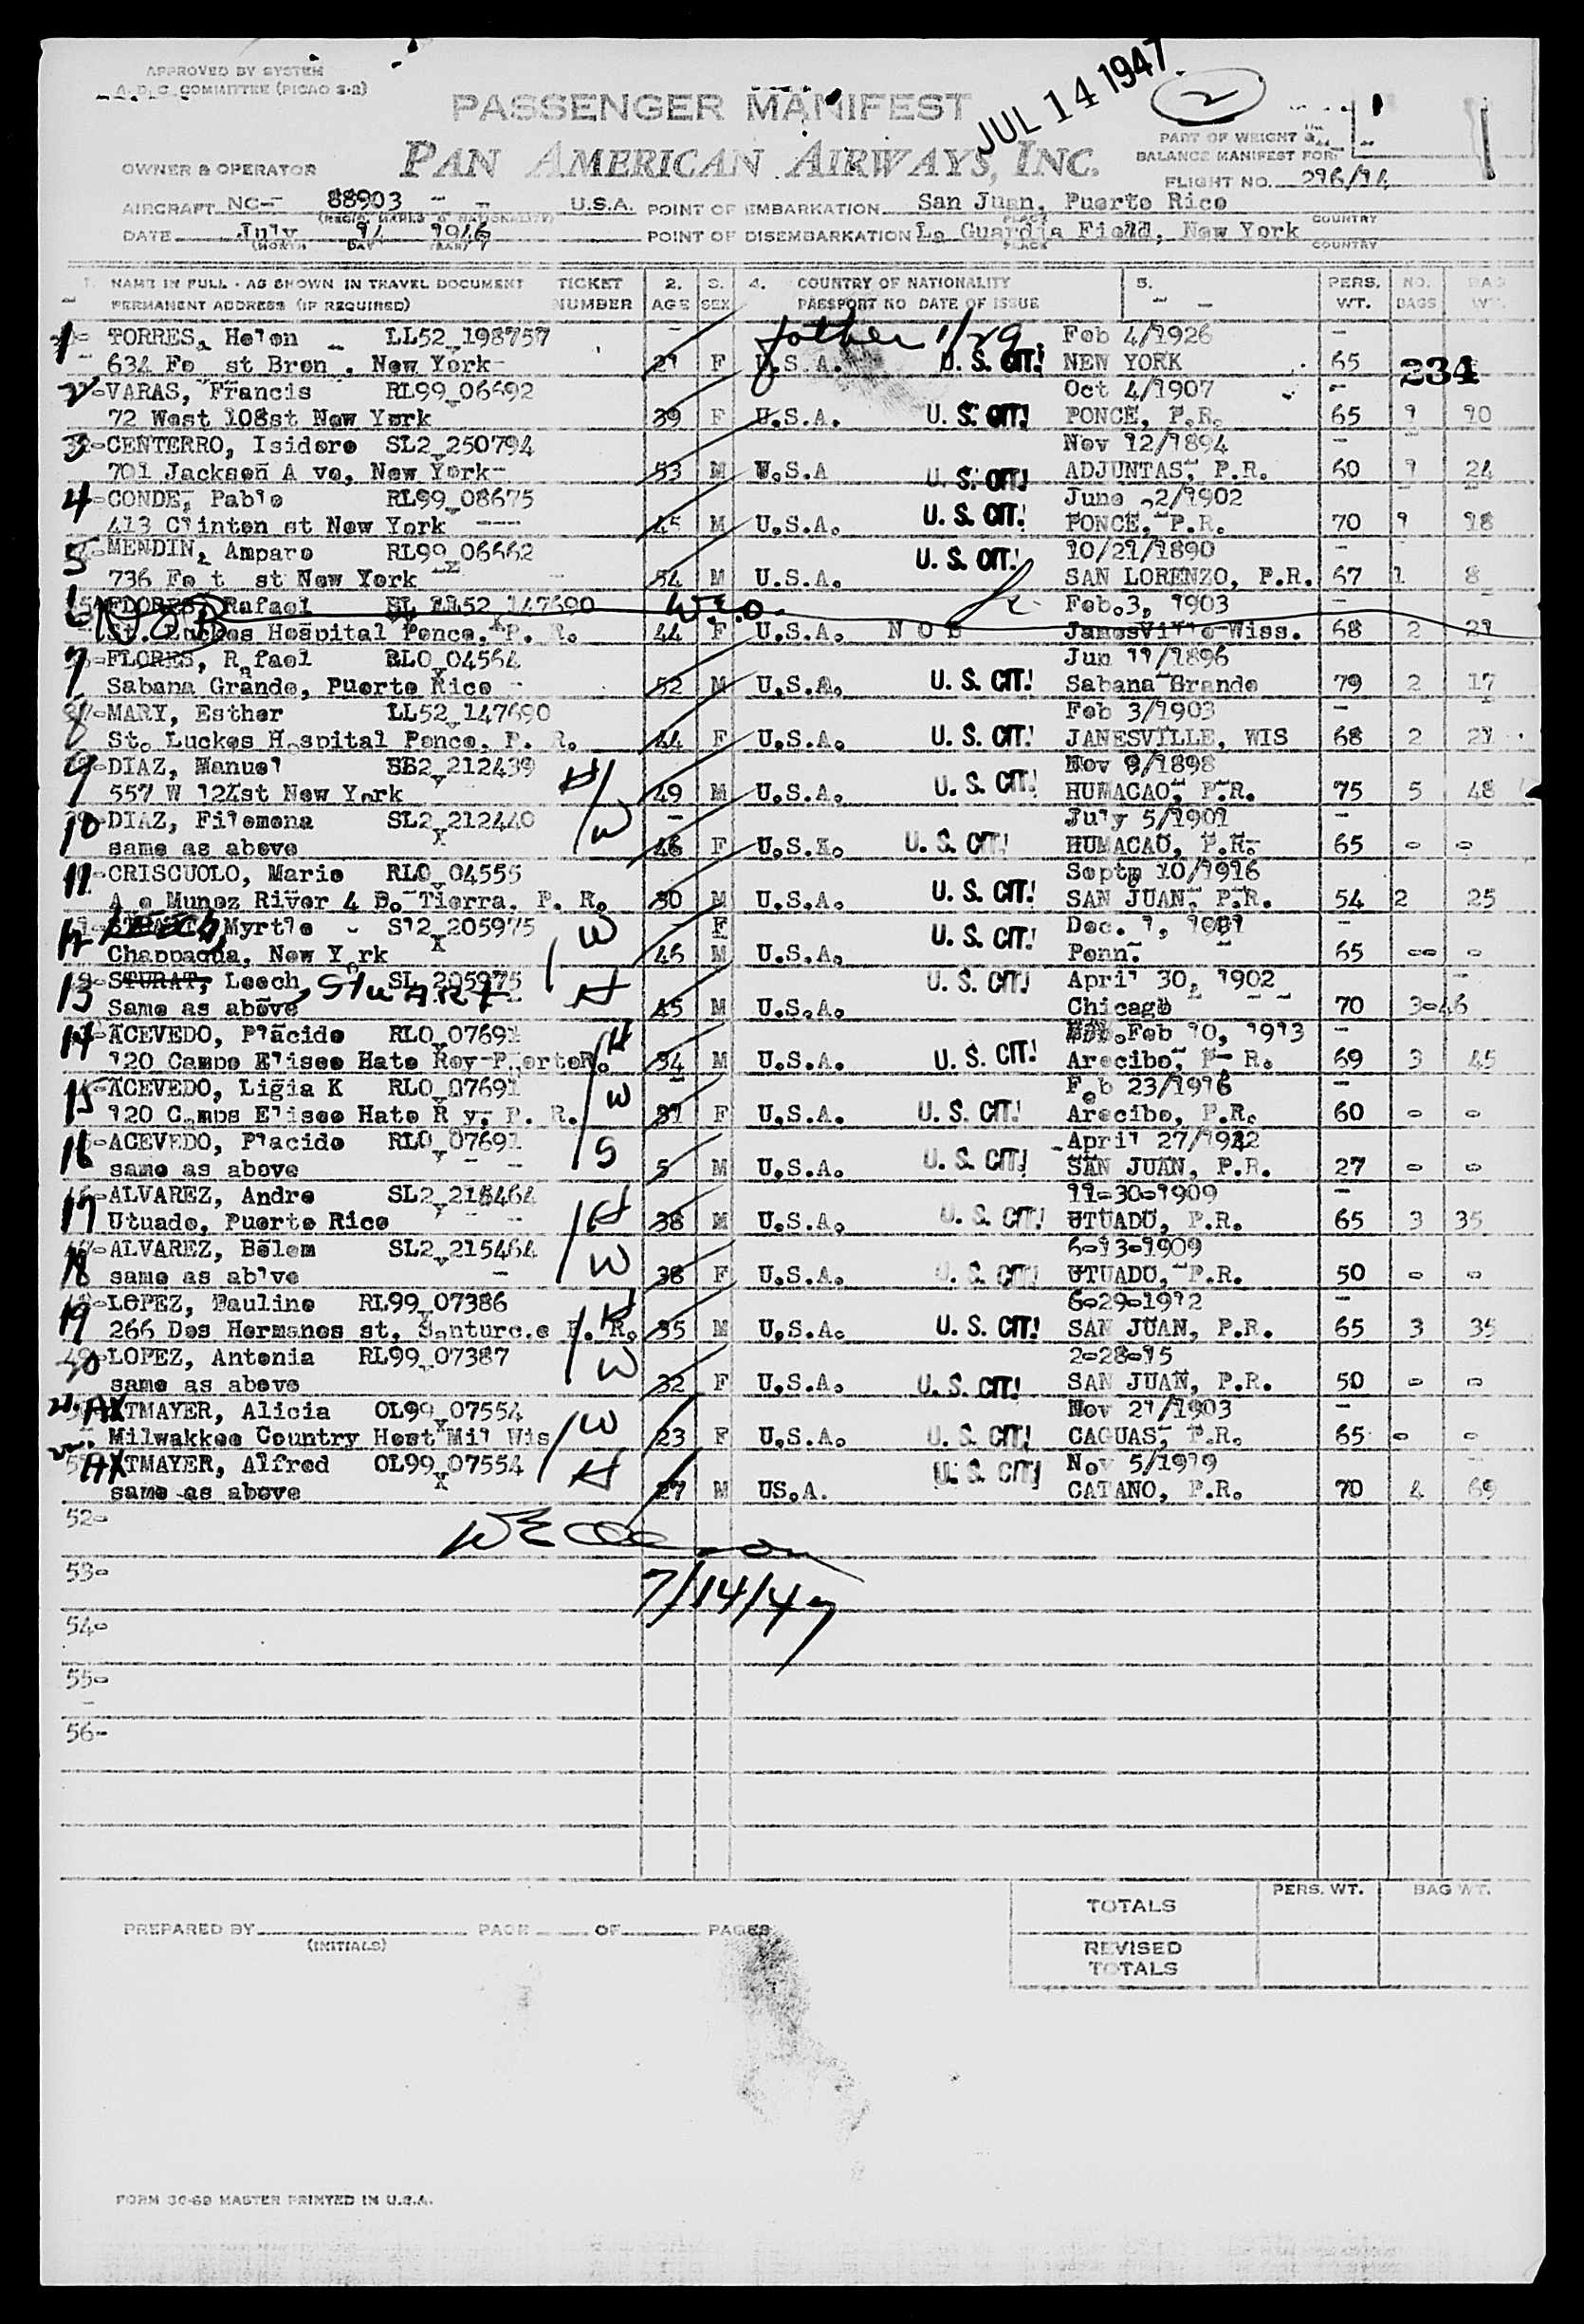 APPROVED BY SYSTEM
A. D. C. COMMITTEE (PICAO S-2)
JUL 14 1947
2
PASSENGER MANIFEST
PAN AMERICAN AIRWAYS, INC.
PART OF WEIGHT &
BALANCE MANIFEST FOR
FLIGHT NO. 296/14
OWNER & OPERATOR
AIRCRAFT NC- 88903 - - U.S.A. POINT OF EMBARKATION San Juan, Puerto Rico
(REGIS. MARKS & NATIONALITY) PLACE COUNTRY
DATE July 14 1946 POINT OF DISEMBARKATION La Guardia Field, New York
(MONTH DAY YEAR) PLACE COUNTRY
1. NAME IN FULL - AS SHOWN IN TRAVEL DOCUMENT TICKET 2. 3. 4. COUNTRY OF NATIONALITY 5. PERS. NO. BAG
PERMANENT ADDRESS (IF REQUIRED) NUMBER AGE SEX PASSPORT NO DATE OF ISSUE WT. BAGS WT.
1 TORRES, Helen LL52 198757 father 1/29 Feb 4/1926
634 Fo st Bron . New York 21 F U.S.A. U. S. CIT! NEW YORK 65 234
2 VARAS, Francis RL99 06692 Oct 4/1907
72 West 108st New York 39 F U.S.A. U. S. CIT! PONCE, P.R. 65 1 10
3 CENTERRO, Isidore SL2 250794 Nov 12/1894
701 Jackson A ve, New York 53 M U.S.A U. S. CIT! ADJUNTAS, P.R. 60 1 24
4 CONDE, Pablo RL99 08675 June 2/1902
413 Clinton st New York --- 45 M U.S.A. U. S. CIT! PONCE, P.R. 70 1 18
5 MENDIN, Amparo RL99 06662 10/21/1890
736 Fo t st New York 54 M U.S.A. U. S. CIT! SAN LORENZO, P.R. 67 1 8
6 FLORES, Rafael LL52 147690 Feb.3, 1903
NOB St. Luckes Hospital Ponce, P. R. 44 F U.S.A. N O B Janesville Wiss. 68 2 21
7 FLORES, Rafael RLO 04564 Jun 11/1896
Sabana Grande, Puerto Rico 52 M U.S.A. U. S. CIT! Sabana Grande 79 2 17
8 MARY, Esther LL52 147690 Feb 3/1903
St. Luckes Hospital Ponce, P. R. 44 F U.S.A. U. S. CIT! JANESVILLE, WIS 68 2 21
9 DIAZ, Manuel SL2 212439 H Nov 9/1898
557 W 124st New York 49 M U.S.A. U. S. CIT! HUMACAO, P.R. 75 5 48
10 DIAZ, Filomena SL2 212440 W July 5/1901
same as above 46 F U.S.A. U. S. CIT! HUMACAO, P.R. 65 - -
11 CRISCUOLO, Mario RLO 04555 Septm 10/1916
A e Munoz River 4 P. Tierra. P. R. 30 M U.S.A. U. S. CIT! SAN JUAN, P.R. 54 2 25
12 Myrtle - S12 205975 W F Dec. 1, 1901
Chappaqua, New York 46 M U.S.A. U. S. CIT! Penn. 65 -- -
13 STURAT, Leech, Stuart SL 205975 H U. S. CIT! April 30, 1902
Same as above 45 M U.S.A. Chicago 70 3-46
14 ACEVEDO, Placido RLO 07691 H Feb 10, 1913
120 Campo Elisee Hato Rey PuertoR. 34 M U.S.A. U. S. CIT! Arecibo, P. R. 69 3 45
15 ACEVEDO, Ligia K RLO 07691 W Feb 23/1916
120 Camps Elisee Hato R y. P. R. 31 F U.S.A. U. S. CIT! Arecibo, P.R. 60 - -
16 ACEVEDO, Placido RLO 07691 S April 27/1942
same as above 5 M U.S.A. U. S. CIT! SAN JUAN, P.R. 27 - -
17 ALVAREZ, Andre SL2 215464 H 11-30-1909
Utuado, Puerto Rico 38 M U.S.A. U. S. CIT! UTUADO, P.R. 65 3 35
18 ALVAREZ, Belem SL2 215464 W 6-13-1909
same as ab1ve 38 F U.S.A. U. S. CIT! UTUADO, P.R. 50 - -
19 LOPEZ, Pauline RL99 07386 H 6-29-1912
266 Dos Hermanos st, Santurc.e P. R. 35 M U.S.A. U. S. CIT! SAN JUAN, P.R. 65 3 35
20 LOPEZ, Antonia RL99 07387 W 2-28-15
same as above 32 F U.S.A. U. S. CIT! SAN JUAN, P.R. 50 - -
21. AXTMAYER, Alicia OL99 07554 W Nov 21/1903
Milwakkee Country Host Mil Wis 23 F U.S.A. U. S. CIT! CAGUAS, P.R. 65 - -
22. AXTMAYER, Alfred OL99 07554 H U. S. CIT! Nov 5/1919
same as above 27 M US.A. CATANO, P.R. 70 4 69
52-
53-
7/14/47
54-
55-
56-
PERS. WT. BAG WT.
TOTALS
PREPARED BY PAGE OF PAGES
(INITIALS)
REVISED
TOTALS
FORM 30-69 MASTER PRINTED IN U.S.A.